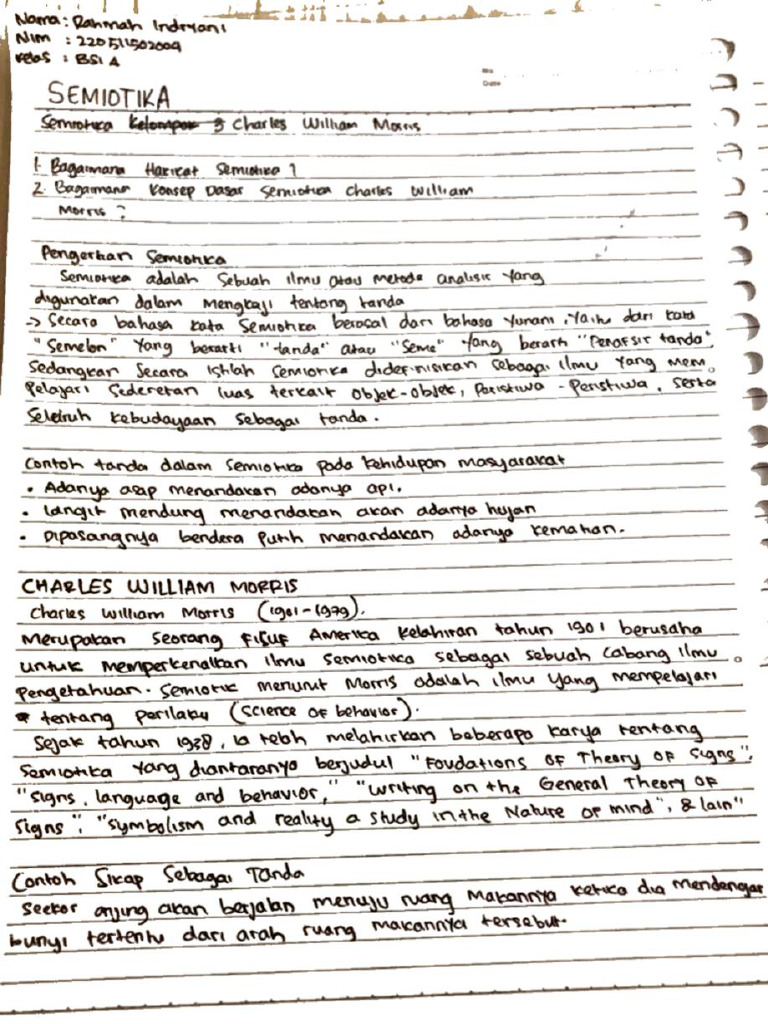 Nama : Rahmah Indryani
Nim : 220511502009
Kelas : BSI A
No
Date
SEMIOTIKA
Semiotika Kelompok 3 Charles William Morris
1. Bagaimana Hakikat Semiotika ?
2. Bagaimana Konsep Dasar Semiotica Charles William
Morris ?
Pengertian Semiotika
Semiotika adalah Sebuah ilmu atau metode analisis yang
digunakan dalam Mengkaji tentang tanda
-> Secara bahasa kata Semiotika berasal dari bahasa Yunani, Yaitu dari kata
"Semeion" Yang berarti "tanda" atau "Seme" Yang berarti "Penafsir tanda".
Sedangkan Secara Istilah Semiotika didefinisikan Sebagai Ilmu Yang Mem
pelajari Sederetan luas terkait objek-objek, Peristiwa - Peristiwa, serta
Seluruh Kebudayaan Sebagai tanda.
Contoh tanda dalam Semiotika pada Kehidupan masyarakat
• Adanya asap menandakan adanya api.
• Langit mendung menandakan akan adanya hujan
• Dipasangnya bendera putih menandakan adanya kematian.
CHARLES WILLIAM MORRIS
Charles William Morris (1901-1979).
Merupakan Seorang Filsuf Amerika Kelahiran tahun 1901 berusaha
untuk memperkenalkan ilmu Semiotika sebagai sebuah Cabang Ilmu
Pengetahuan. Semiotik menurut Morris adalah ilmu yang mempelajari
tentang perilaku (Science of behavior).
Sejak tahun 1938, ia telah melahirkan beberapa karya tentang
Semiotika yang diantaranya berjudul "Foudations of Theory of Signs",
"Signs, language and behavior," "Writing on the General Theory of
Signs", "Symbolism and reality a study in the Nature of mind", & lain"
Contoh Sikap Sebagai Tanda
Seekor anjing akan berjalan menuju ruang Makannya ketika dia Mendengar
bunyi tertentu dari arah ruang makannya tersebut.